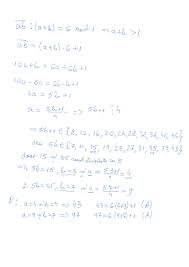 ab : (a+b) = 6 rest 1 ⇒ a+b > 1
ab = (a+b)·6+1
10a+b = 6a+6b+1
10a-6a = 6b-b+1
4a = 5b+1
a = 5b+1/4 ⇒ 5b+1 ⋮ 4
⇒ 5b+1 ∈ {8, 12, 16, 20, 24, 28, 32, 36, 40, 44}
5b ∈ {7, 11, 15, 19, 23, 27, 31, 35, 39, 43}
doar 15 și 35 sunt divizibile cu 5
1. 5b=15, b=3 și a = 5·3+1/4 = 4
2. 5b=35, b=7 și a = 5·7+1/4 = 9
R: a=4 și b=3 ⇒ 43 43=6(4+3)+1 (A)
a=9 și b=7 ⇒ 97 97=6(9+7)+1 (A)